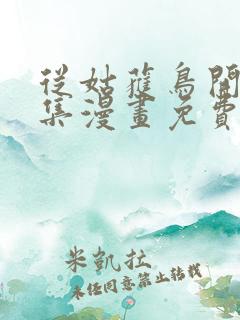 從姑蘿鳥開
集漫畫免費
米凱拉
未經同意禁止轉載